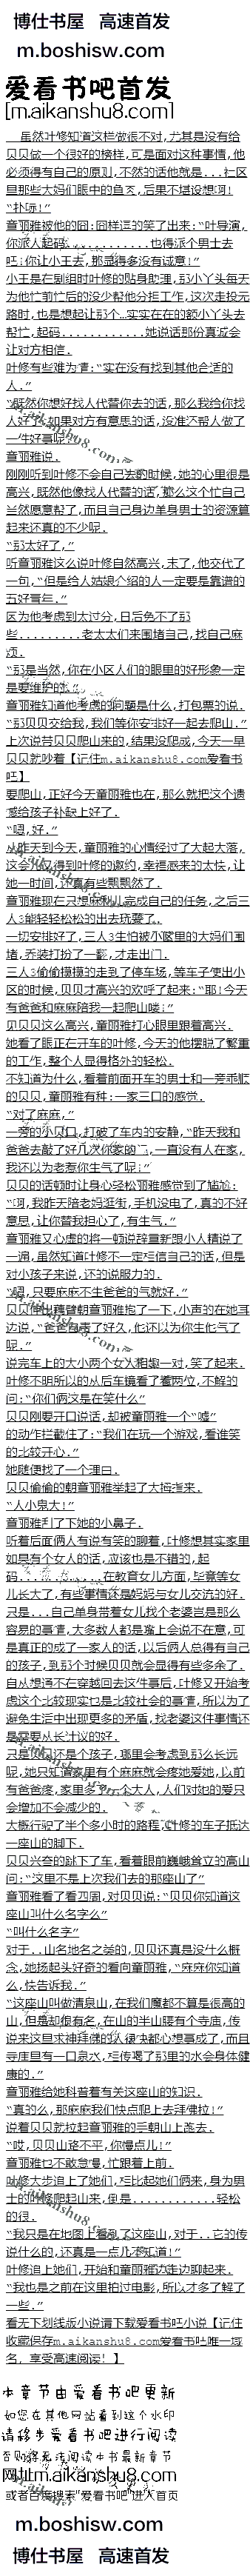 博仕书屋 高速首发
m.boshisw.com
爱看书吧首发
[m.aikanshu8.com]
虽然叶修知道这样做很不对,尤其是没有给
贝贝做一个很好的榜样,可是面对这种事情,他
必须得有自己的原则,不然的话他就是...社区
里那些大妈们眼中的鱼肉,后果不堪设想啊!
童丽雅被他的囧:囧样逗的笑了出来:“叶导演,
你派人起码............也得派个男士去
吧!你让小王去,那显得多没有诚意!”
小王是在剧组时叶修的贴身助理,那小丫头每天
为他忙前忙后的没少帮他分担工作,这次走投无
路时,也是想起让那个...实实在在的额小丫头去
帮忙,起码............她说话那份真诚会
让对方相信.
叶修有些难为情:“实在没有找到其他合适的
人.”
“既然你想好找人代替你去的话,那么我给你找
人好了,如果对方有意思的话,没准还帮人做了
一件好事呢!”
童丽雅说.
刚刚听到叶修不会自己去的时候,她的心里很是
高兴,既然他像找人代替的话,那么这个忙自己
当然愿意帮了,而且自己身边单身男士的资源算
起来还真的不少呢.
“那太好了,”
听童丽雅这么说叶修自然高兴,末了,他交代了
一句,“但是给人姑娘介绍的人一定要是靠谱的
五好青年.”
因为他考虑到太过分,日后免不了那
些.........老太太们来围堵自己,找自己麻
烦.
“那是当然,你在小区人们的眼里的好形象一定
是要维护的.”
童丽雅知道他考虑的问题是什么,打包票的说.
“那贝贝交给我,我们等你安排好一起去爬山.”
上次说带贝贝爬山来的,结果没爬成,今天一早
贝贝就吵着【记住m.aikanshu8.com爱看书
吧】
要爬山,正好今天童丽雅也在,那么就把这个遗
憾给孩子补缺上好了.
“嗯,好.”
从昨天到今天,童丽雅的心情经过了大起大落,
这会儿又得到叶修的邀约,幸福感来的太快,让
她一时间,还真有些飘飘然了.
童丽雅现在只想临别儿完成自己的任务,之后三
人3能轻轻松松的出去玩耍了.
一切安排好了,三人3生怕被小区里的大妈们围
堵,乔装打扮了一翻,才走出门.
三人3偷偷摸摸的走到了停车场,等车子使出小
区的时候,贝贝才高兴的欢呼了起来:“耶!今天
有爸爸和麻麻陪我一起爬山喽!”
见贝贝这么高兴,童丽雅打心眼里跟着高兴.
她看了眼正在开车的叶修,今天的他摆脱了繁重
的工作,整个人显得格外的轻松.
不知道为什么,看着前面开车的男士和一旁乖顺
的贝贝,童丽雅有种:一家三口的感觉.
“对了麻麻,”
一旁的小贝贝,打破了车内的安静,“昨天我和
爸爸去敲了好几次你家的门,一直没有人在家,
我还以为老惹你生气了呢!”
贝贝的话顿时让身心轻松丽雅感觉到了尴尬:
“啊,我昨天陪老妈逛街,手机没电了,真的不好
意思,让你替我担心了,有生气.”
童丽雅又心虚的将一顿说辞重新跟小人精说了
一遍,虽然知道叶修不一定相信自己的话,但是
对小孩子来说,还的说服力的.
“嗯,只要麻麻不生爸爸的气就好.”
贝贝伸出胳臂朝童丽雅抱了一下,小声的在她耳
边说,“爸爸自责了好久,他还以为你生他气了
呢.”
说完车上的大小两个女人相趣一对,笑了起来.
叶修不明所以的从后车镜看了看两位,不解的
问:“你们俩这是在笑什么”
贝贝刚要开口说话,却被童丽雅一个“嘘”
的动作拦截住了:“我们在玩一个游戏,看谁笑
的比较开心.”
她随便找了一个理由.
贝贝偷偷的朝童丽雅举起了大拇指来.
“人小鬼大!”
童丽雅刮了下她的小鼻子.
听着后面俩人有说有笑的聊着,叶修想其实家里
如果有个女人的话,应该也是不错的,起
码............在教育女儿方面,毕竟等女
儿长大了,有些事情还是妈妈与女儿交流的好.
只是...自己单身带着女儿找个老婆岂是那么
容易的事情,大多数人都是嘴上会说不在意,可
是真正的成了一家人的话,以后俩人总得有自己
的孩子,到那个时候贝贝就会显得有些多余了.
自从想通不在穿越回去这件事后,叶修又开始考
虑这个比较现实也是比较社会的事情,所以为了
避免生活中出现更多的矛盾,找老婆这件事情还
是需要从长计议的好.
只是贝贝还是个孩子,哪里会考虑到那么长远
呢,她只知道家里有个麻麻就会疼她爱她,以前
有爸爸疼,家里多了一个大人,人们对她的爱只
会增加不会减少的.
大概行驶了半个多小时的路程,叶修的车子抵达
一座山的脚下.
贝贝兴奋的跳下了车,看着眼前巍峨耸立的高山
问:“这里不是上次我们去的那座山了”
童丽雅看了看四周,对贝贝说:“贝贝你知道这
座山叫什么名字么”
“叫什么名字”
对于..山名地名之类的,贝贝还真是没什么概
念,她扬起头好奇的看向童丽雅,“麻麻你知道
么,快告诉我.”
“这座山叫做清泉山,在我们魔都不算是很高的
山,但是却很有名,在山的半山腰有个寺庙,传
说来这里求神拜佛的人很快都心想事成了,而且
寺庙里有一口泉水,相传喝了那里的水会身体健
康的.”
童丽雅给她科普着有关这座山的知识.
“真的么,那麻麻我们快点爬上去拜佛拉!”
说着贝贝就拉起童丽雅的手朝山上走去.
“哎,贝贝山路不平,你慢点儿!”
童丽雅也不敢怠慢,忙跟着上前.
叶修大步追上了她们,相比起她们俩来,身为男
士的叶修爬起山来,倒是............轻松
的很.
“我只是在地图上看到了这座山,对于..它的传
说什么的,还真是一点儿不知道!”
叶修追上她们,开始和童丽雅边走边聊起来.
“我也是之前在这里拍过电影,所以才多了解了
一些.”
看无下划线版小说请下载爱看书吧小说【记住
收藏保存m.aikanshu8.com爱看书吧唯一域
名，享受高速阅读！】
本章节由爱看书吧更新
如您在其他网站看到这个内容
请移步爱看书吧进行阅读
否则将无法阅读本书最新章节
网址m.aikanshu8.com
或者百度搜索“爱看书吧”进入首页
m.boshisw.com
博仕书屋 高速首发